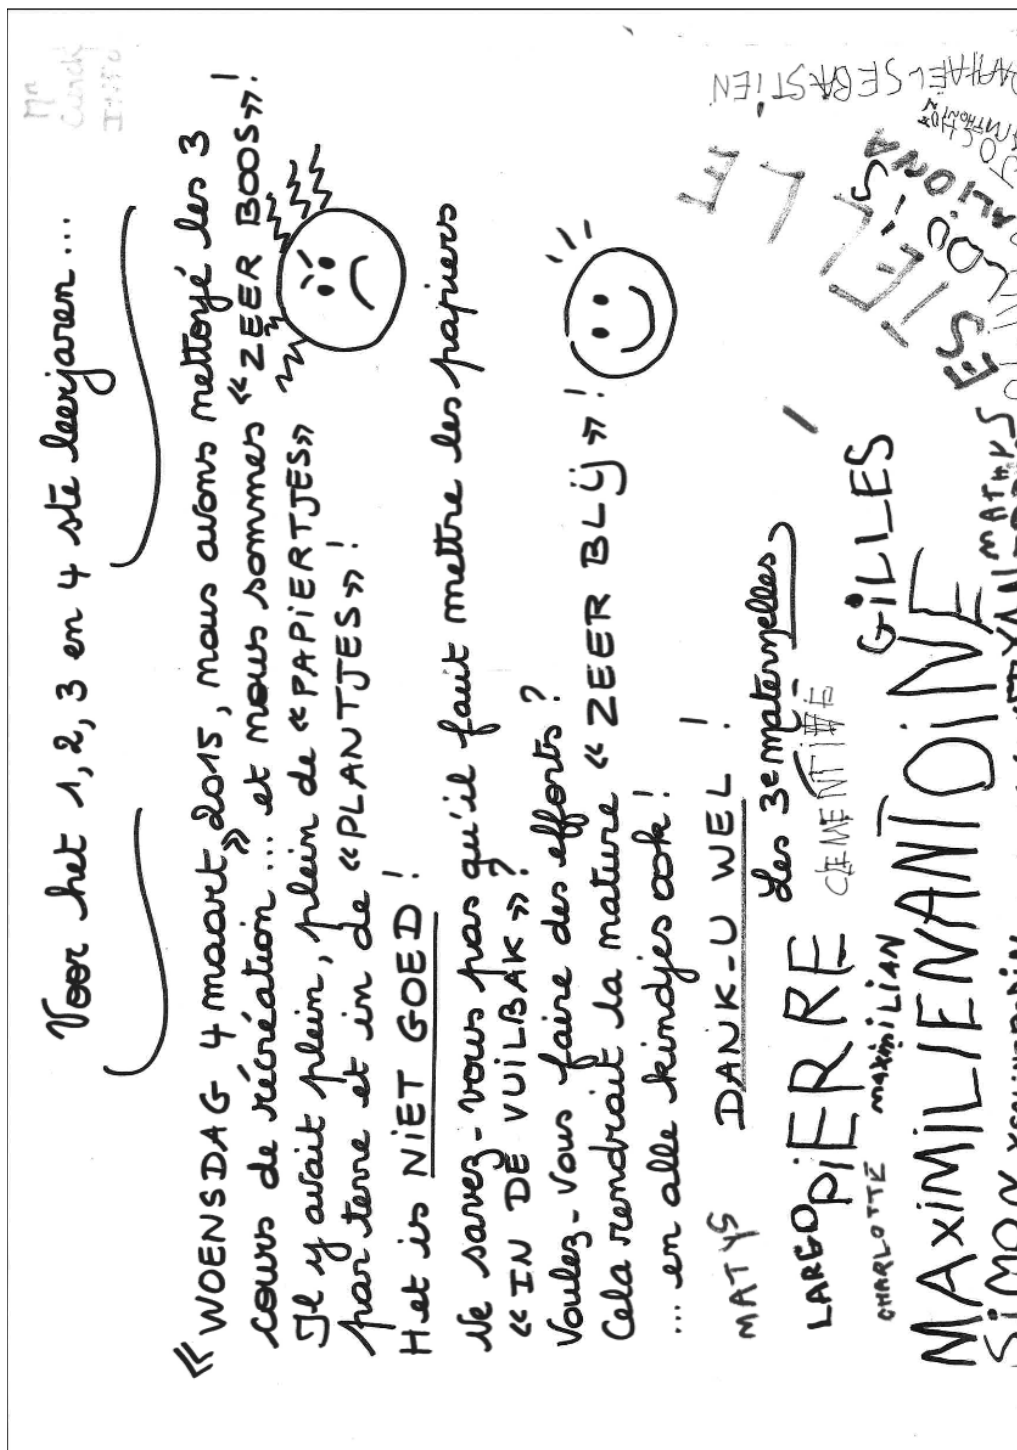 Voor het 1, 2, 3 en 4 ste leerjaren...
« WOENSDAG 4 maart » 2015, nous avons nettoyé les 3
cours de récréation... et nous sommes « ZEER BOOS » !
Il y avait plein, plein de « PAPiERTJES »
par terre et in de « PLANTJES » !
Het is NiET GOED !
Ne savez-vous pas qu'il faut mettre les papiers
« IN DE VUiLBAK » ?
Voulez-vous faire des efforts ?
Cela rendrait la nature « ZEER BLij » !
... en alle kindjes ook !
DANK-U WEL !
Les 3e maternelles
MATYS
LARGO PiERRE CLEMENTiNE GiLLES
CHARLOTTE MAXiMiLiAN
MAXiMiLIEN ANTOiNE
MATHYS
ESTELLE
ALIONA
SEBASTiEN